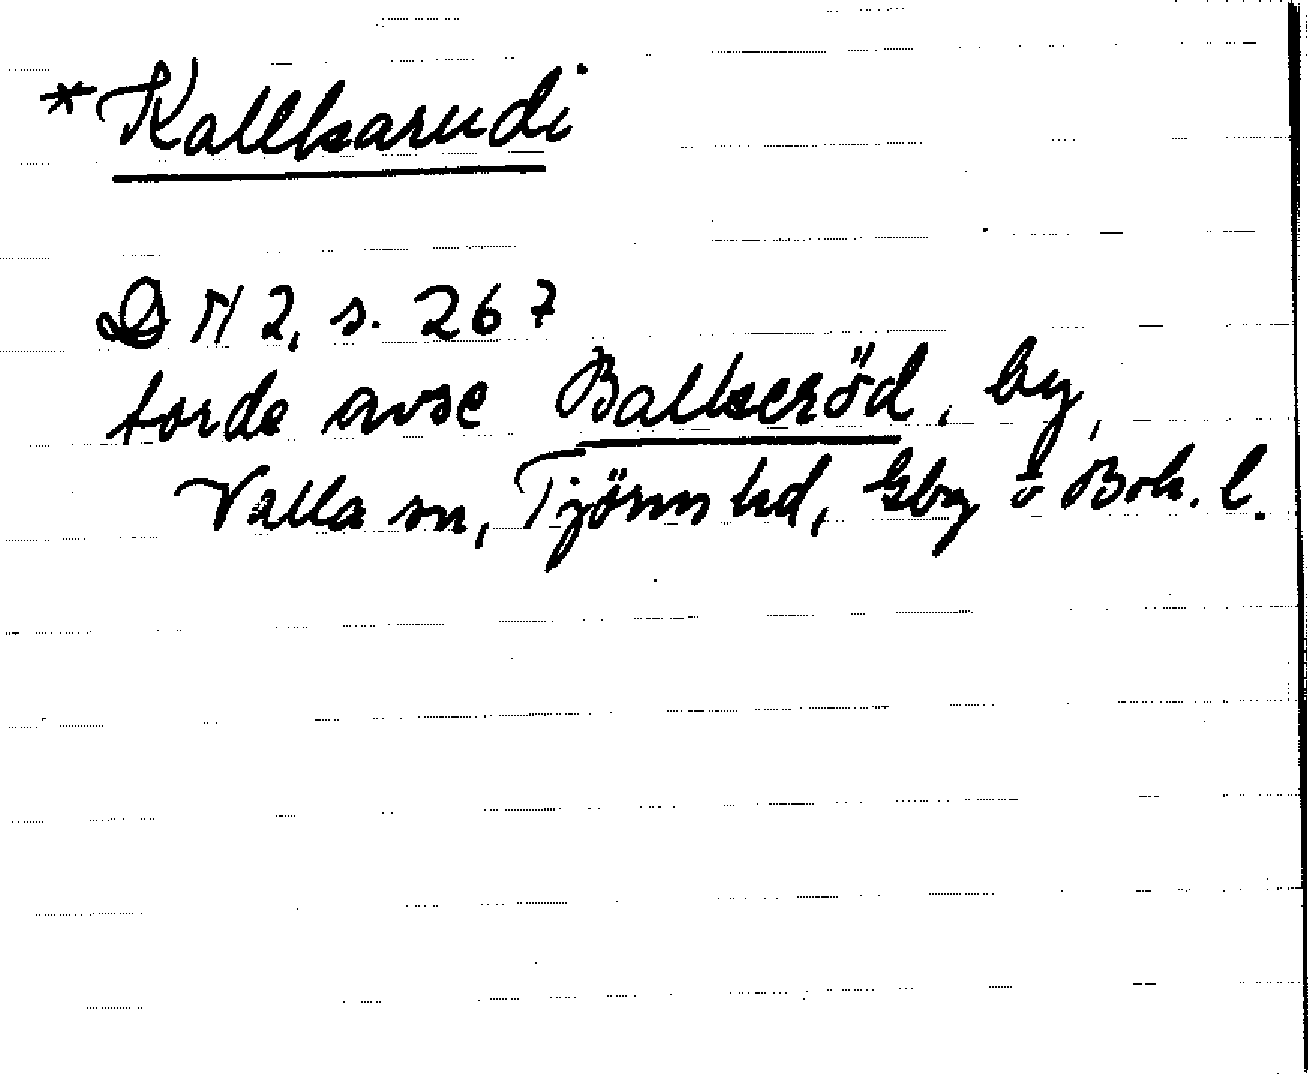 *Kallkarudi
DN 2, s. 267
torde avse Ballkeröd, by,
Valla sn, Tjörns hd, Gbg o Boh. l.